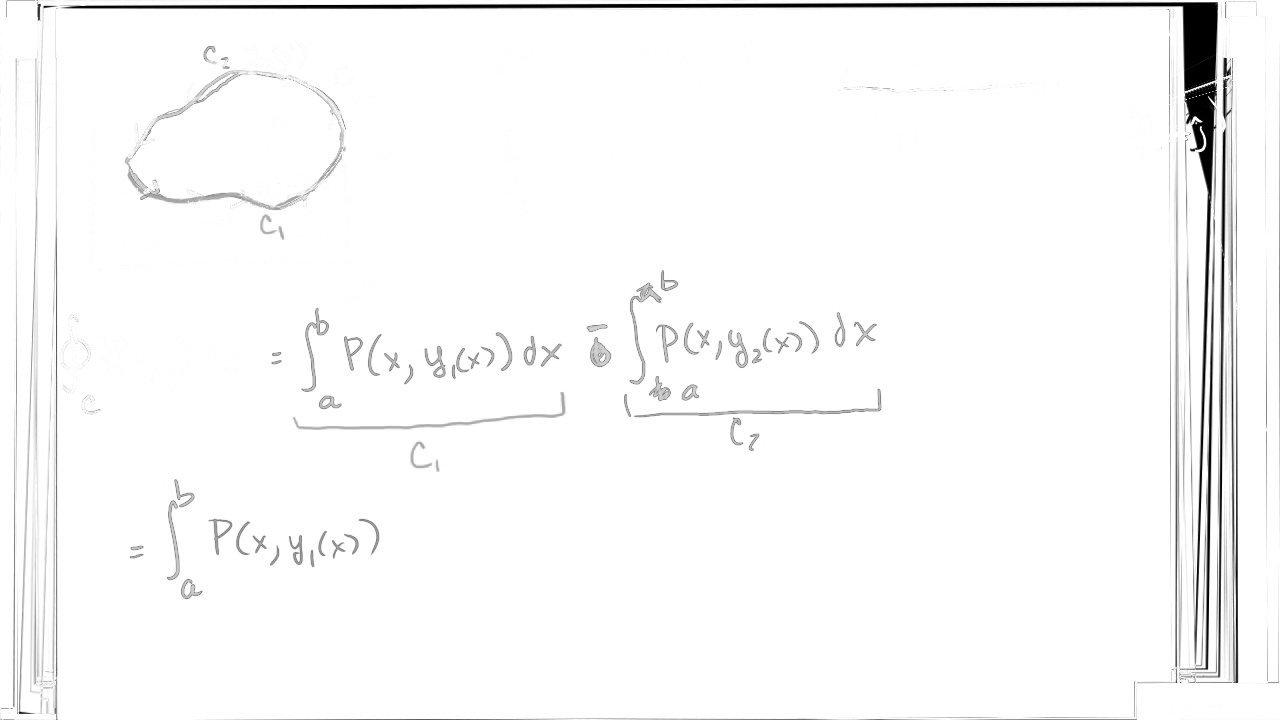 C₂
C₁
= ∫ₐᵇ P(x, y₁(x)) dx − ∫ₐᵇ P(x, y₂(x)) dx
C₁ C₂
c
= ∫ₐᵇ P(x, y₁(x))